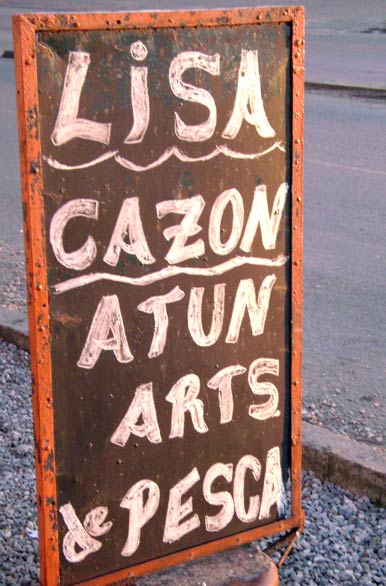 LiSA
CAZON
ATUN
ARTS.
de PESCA